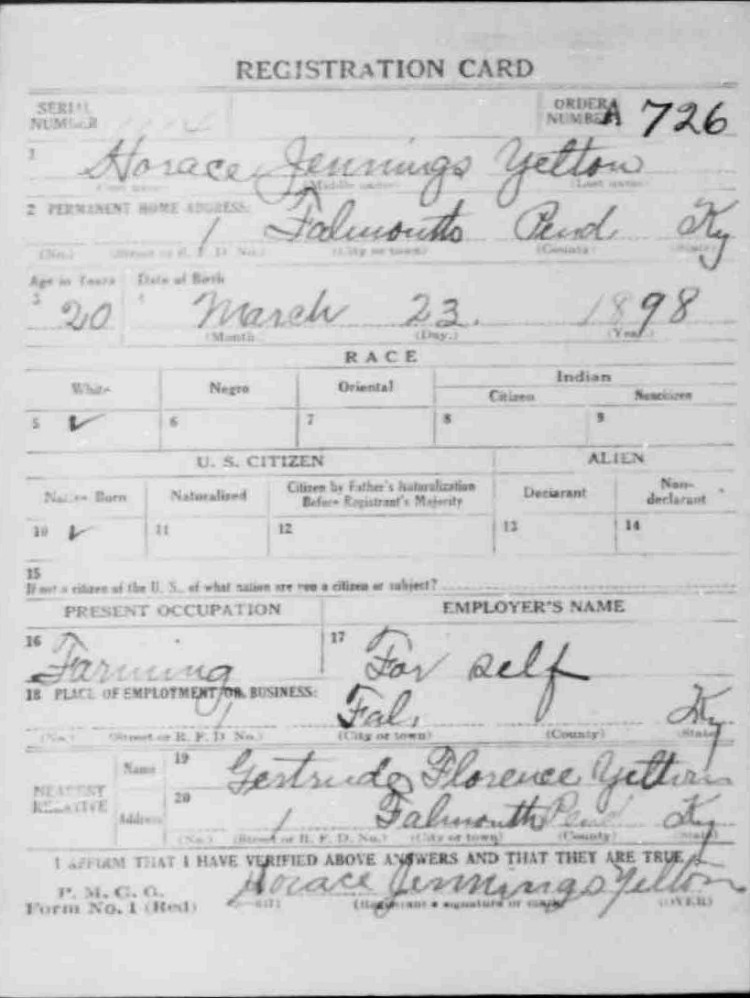 REGISTRATION CARD
SERIAL NUMBER
ORDER NUMBER A 726
1 Horace Jennings Yelton
(Middle name) (Last name)
2 PERMANENT HOME ADDRESS:
1 Falmouth Pend Ky
(No.) (Street or R. F. D. No.) (City or town) (County) (State)
Age in Years Date of Birth
3 20 4 March 23. 1898
(Month) (Day.) (Year.)
RACE
White Negro Oriental Indian
Citizen Noncitizen
5 ✓ 6 7 8 9
U. S. CITIZEN ALIEN
Native Born Naturalized Citizen by Father's Naturalization Before Registrant's Majority Declarant Non-declarant
10 ✓ 11 12 13 14
15
If not a citizen of the U. S., of what nation are you a citizen or subject?
PRESENT OCCUPATION EMPLOYER'S NAME
16 Farming 17 For self
18 PLACE OF EMPLOYMENT OR BUSINESS:
1 Fal. Ky
(No.) (Street or R. F. D. No.) (City or town) (County) (State)
NEAREST RELATIVE
Name 19 Gertrude Florence Yelton
Address 20 1 Falmouth Pend Ky
(No.) (Street or R. F. D. No.) (City or town) (County) (State)
I AFFIRM THAT I HAVE VERIFIED ABOVE ANSWERS AND THAT THEY ARE TRUE
P. M. G. O.
Form No. 1 (Red) Horace Jennings Yelton
(Registrant's signature or mark) (OVER)